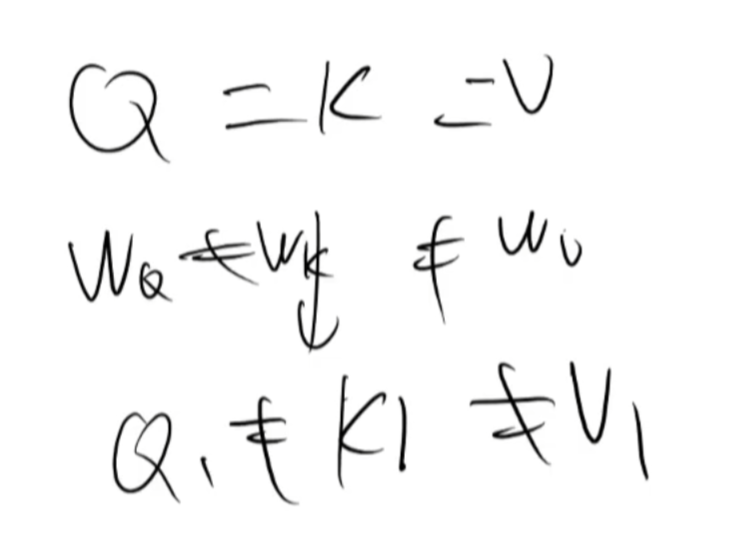 Q = K = V
WQ ≠ WK ≠ WV
Q1 ≠ K1 ≠ V1